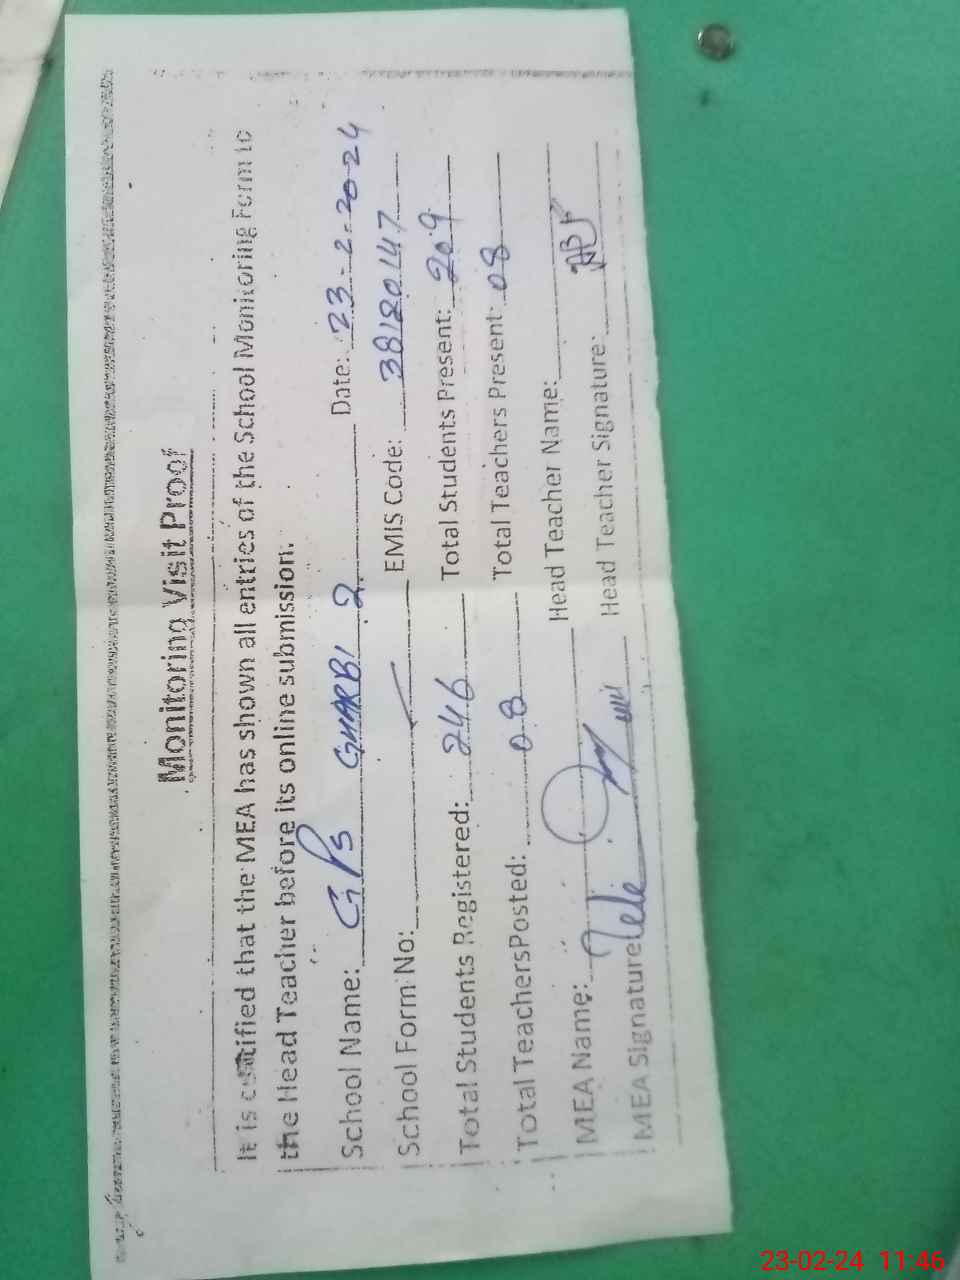 Monitoring Visit Proof
It is certified that the MEA has shown all entries of the School Monitoring Form to
the Head Teacher before its online submission.
School Name: GPS GHARBI 2 Date: 23-2-2024
School Form No: EMIS Code: 38180147
Total Students Registered: 246 Total Students Present: 209
Total Teachers Posted: 08 Total Teachers Present: 08
MEA Name: Head Teacher Name:
MEA Signature Head Teacher Signature:
23-02-24 11:46